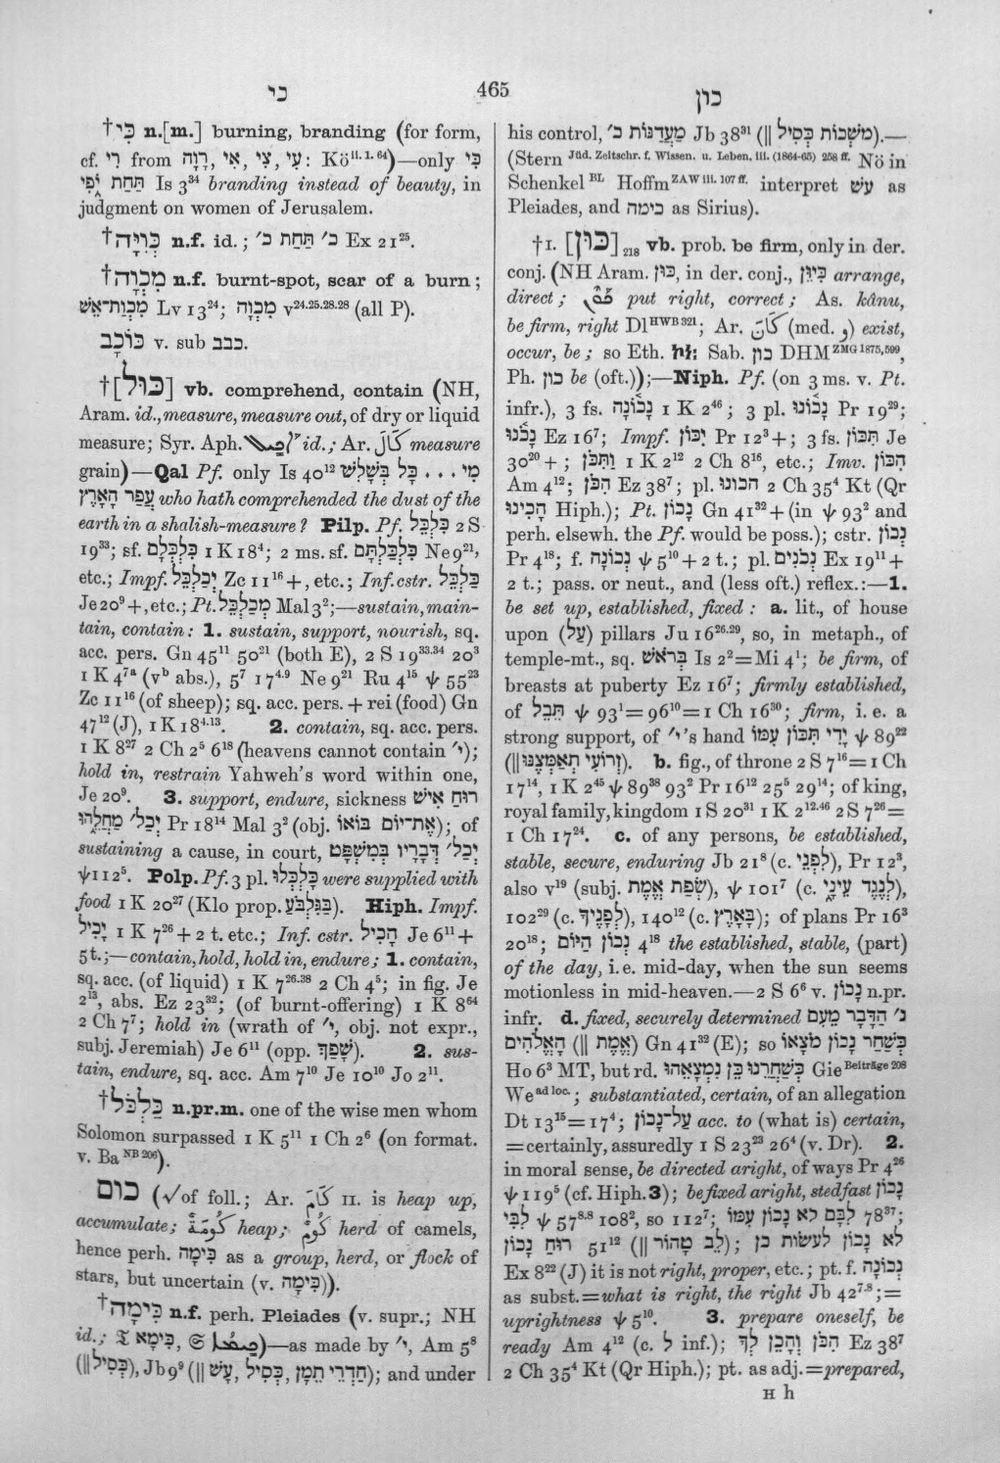 כי 465 כון
†כִּי n.[m.] burning, branding (for form,
cf. רִי from רָוָה, אִי, צִי, עִי: Kö ii. 1. 64)—only כִּי
תַּחַת יֹפִי Is 3³⁴ branding instead of beauty, in
judgment on women of Jerusalem.
†כְּוִיָּה n.f. id.; כ׳ תַּחַת כ׳ Ex 21²⁵.
†מִכְוָה n.f. burnt-spot, scar of a burn;
מִכְוַת־אֵשׁ Lv 13²⁴; מִכְוָה v²⁴·²⁵·²⁸·²⁸ (all P).
כּוֹכָב v. sub כבב.
†[כּוּל] vb. comprehend, contain (NH,
Aram. id., measure, measure out, of dry or liquid
measure; Syr. Aph. id.; Ar. كَالَ measure
grain)—Qal Pf. only Is 40¹² מִי . . . כָּל בְּשָׁלִשׁ
עֲפַר הָאָרֶץ who hath comprehended the dust of the
earth in a shalish-measure? Pilp. Pf. כִּלְכֵּל 2 S
19³³; sf. כִּלְכְּלָם 1 K 18⁴; 2 ms. sf. כִּלְכַּלְתָּם Ne 9²¹,
etc.; Impf. יְכַלְכֵּל Zc 11¹⁶ +, etc.; Inf. cstr. כַּלְכֵּל
Je 20⁹ +, etc.; Pt. מְכַלְכֵּל Mal 3²;—sustain, main-
tain, contain: 1. sustain, support, nourish, sq.
acc. pers. Gn 45¹¹ 50²¹ (both E), 2 S 19³³·³⁴ 20³
1 K 4⁷ᵃ (vᵇ abs.), 5⁷ 17⁴·⁹ Ne 9²¹ Ru 4¹⁵ ψ 55²³
Zc 11¹⁶ (of sheep); sq. acc. pers. + rei (food) Gn
47¹² (J), 1 K 18⁴·¹³. 2. contain, sq. acc. pers.
1 K 8²⁷ 2 Ch 2⁵ 6¹⁸ (heavens cannot contain י׳);
hold in, restrain Yahweh's word within one,
Je 20⁹. 3. support, endure, sickness רוּחַ אִישׁ
יְכַל׳ מַחֲלֵהוּ Pr 18¹⁴ Mal 3² (obj. אֶת־יוֹם בּוֹאוֹ); of
sustaining a cause, in court, יְכַל׳ דְּבָרָיו בְּמִשְׁפָּט
ψ 112⁵. Polp. Pf. 3 pl. כָּלְכְּלוּ were supplied with
food 1 K 20²⁷ (Klo prop. בַּגִּלְבֹּעַ). Hiph. Impf.
יָכִיל 1 K 7²⁶ + 2 t. etc.; Inf. cstr. הָכִיל Je 6¹¹ +
5 t.;—contain, hold, hold in, endure; 1. contain,
sq. acc. (of liquid) 1 K 7²⁶·³⁸ 2 Ch 4⁵; in fig. Je
2¹³, abs. Ez 23³²; (of burnt-offering) 1 K 8⁶⁴
2 Ch 7⁷; hold in (wrath of י׳, obj. not expr.,
subj. Jeremiah) Je 6¹¹ (opp. שָׁפַךְ). 2. sus-
tain, endure, sq. acc. Am 7¹⁰ Je 10¹⁰ Jo 2¹¹.
†כַּלְכֹּל n.pr.m. one of the wise men whom
Solomon surpassed 1 K 5¹¹ 1 Ch 2⁶ (on format.
v. Ba NB 206).
כום (√ of foll.; Ar. كَامَ II. is heap up,
accumulate; كُومَةٌ heap; كَوْمٌ herd of camels,
hence perh. כִּימָה as a group, herd, or flock of
stars, but uncertain (v. כִּימָה)).
†כִּימָה n.f. perh. Pleiades (v. supr.; NH
id.; 𝔗 כִּימָא, 𝔖)—as made by י׳, Am 5⁸
(‖ כְּסִיל), Jb 9⁹ (‖ חַדְרֵי תֵמָן, כְּסִיל, עָשׁ); and under
his control, מַעֲדַנּוֹת כ׳ Jb 38³¹ (‖ מֹשְׁכוֹת כְּסִיל).—
(Stern Jüd. Zeitschr. f. Wissen. u. Leben, iii. (1864-65) 258 ff. Nö in
Schenkel BL Hoffm ZAW iii. 107 ff. interpret עָשׁ as
Pleiades, and כימה as Sirius).
†I. [כּוּן] 218 vb. prob. be firm, only in der.
conj. (NH Aram. כּוּן, in der. conj., כִּיֵּן arrange,
direct; put right, correct; As. kânu,
be firm, right Dl HWB 321; Ar. كَانَ (med. و) exist,
occur, be; so Eth. ኮነ: Sab. כון DHM ZMG 1875, 599,
Ph. כון be (oft.));—Niph. Pf. (on 3 ms. v. Pt.
infr.), 3 fs. נָכוֹנָה 1 K 2⁴⁶; 3 pl. נָכוֹנוּ Pr 19²⁹;
נָכֹנוּ Ez 16⁷; Impf. יִכּוֹן Pr 12³ +; 3 fs. תִּכּוֹן Je
30²⁰ +; וַתִּכֹּן 1 K 2¹² 2 Ch 8¹⁶, etc.; Imv. הִכּוֹן
Am 4¹²; הִכֹּן Ez 38⁷; pl. הכונו 2 Ch 35⁴ Kt (Qr
הָכִינוּ Hiph.); Pt. נָכוֹן Gn 41³² + (in ψ 93² and
perh. elsewh. the Pf. would be poss.); cstr. נְכוֹן
Pr 4¹⁸; f. נְכוֹנָה ψ 5¹⁰ + 2 t.; pl. נְכֹנִים Ex 19¹¹ +
2 t.; pass. or neut., and (less oft.) reflex.:—1.
be set up, established, fixed: a. lit., of house
upon (עַל) pillars Ju 16²⁶·²⁹, so, in metaph., of
temple-mt., sq. בְּרֹאשׁ Is 2² = Mi 4¹; be firm, of
breasts at puberty Ez 16⁷; firmly established,
of תֵּבֵל ψ 93¹ = 96¹⁰ = 1 Ch 16³⁰; firm, i. e. a
strong support, of י׳'s hand יָדִי תִּכּוֹן עִמּוֹ ψ 89²²
(‖ זְרוֹעִי תְאַמְּצֶנּוּ). b. fig., of throne 2 S 7¹⁶ = 1 Ch
17¹⁴, 1 K 2⁴⁵ ψ 89³⁸ 93² Pr 16¹² 25⁵ 29¹⁴; of king,
royal family, kingdom 1 S 20³¹ 1 K 2¹²·⁴⁶ 2 S 7²⁶ =
1 Ch 17²⁴. c. of any persons, be established,
stable, secure, enduring Jb 21⁸ (c. לִפְנֵי), Pr 12³,
also v¹⁹ (subj. שְׂפַת אֱמֶת), ψ 101⁷ (c. לְנֶגֶד עֵינָי),
102²⁹ (c. לְפָנֶיךָ), 140¹² (c. בָּאָרֶץ); of plans Pr 16³
20¹⁸; נְכוֹן הַיּוֹם 4¹⁸ the established, stable, (part)
of the day, i. e. mid-day, when the sun seems
motionless in mid-heaven.—2 S 6⁶ v. נָכוֹן n.pr.
infr. d. fixed, securely determined נ׳ הַדָּבָר מֵעִם
הָאֱלֹהִים (‖ אֱמֶת) Gn 41³² (E); so כְּשַׁחַר נָכוֹן מֹצָאוֹ
Ho 6³ MT, but rd. כְּשַׁחֲרֵנוּ כֵּן נִמְצָאֵהוּ Gie Beiträge 208
We ad loc.; substantiated, certain, of an allegation
Dt 13¹⁵ = 17⁴; עַל־נָכוֹן acc. to (what is) certain,
= certainly, assuredly 1 S 23²³ 26⁴ (v. Dr). 2.
in moral sense, be directed aright, of ways Pr 4²⁶
ψ 119⁵ (cf. Hiph. 3); be fixed aright, stedfast נָכוֹן
לִבִּי ψ 57⁸·⁸ 108², so 112⁷; לִבָּם לֹא נָכוֹן עִמּוֹ 78³⁷;
רוּחַ נָכוֹן 51¹² (‖ לֵב טָהוֹר); לֹא נָכוֹן לַעֲשׂוֹת כֵּן
Ex 8²² (J) it is not right, proper, etc.; pt. f. נְכוֹנָה
as subst. = what is right, the right Jb 42⁷·⁸; =
uprightness ψ 5¹⁰. 3. prepare oneself, be
ready Am 4¹² (c. לְ inf.); הִכֹּן וְהָכֵן לְךָ Ez 38⁷
2 Ch 35⁴ Kt (Qr Hiph.); pt. as adj. = prepared,
H h